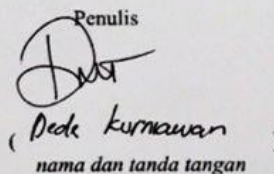 Penulis
( Dede Kurniawan
nama dan tanda tangan